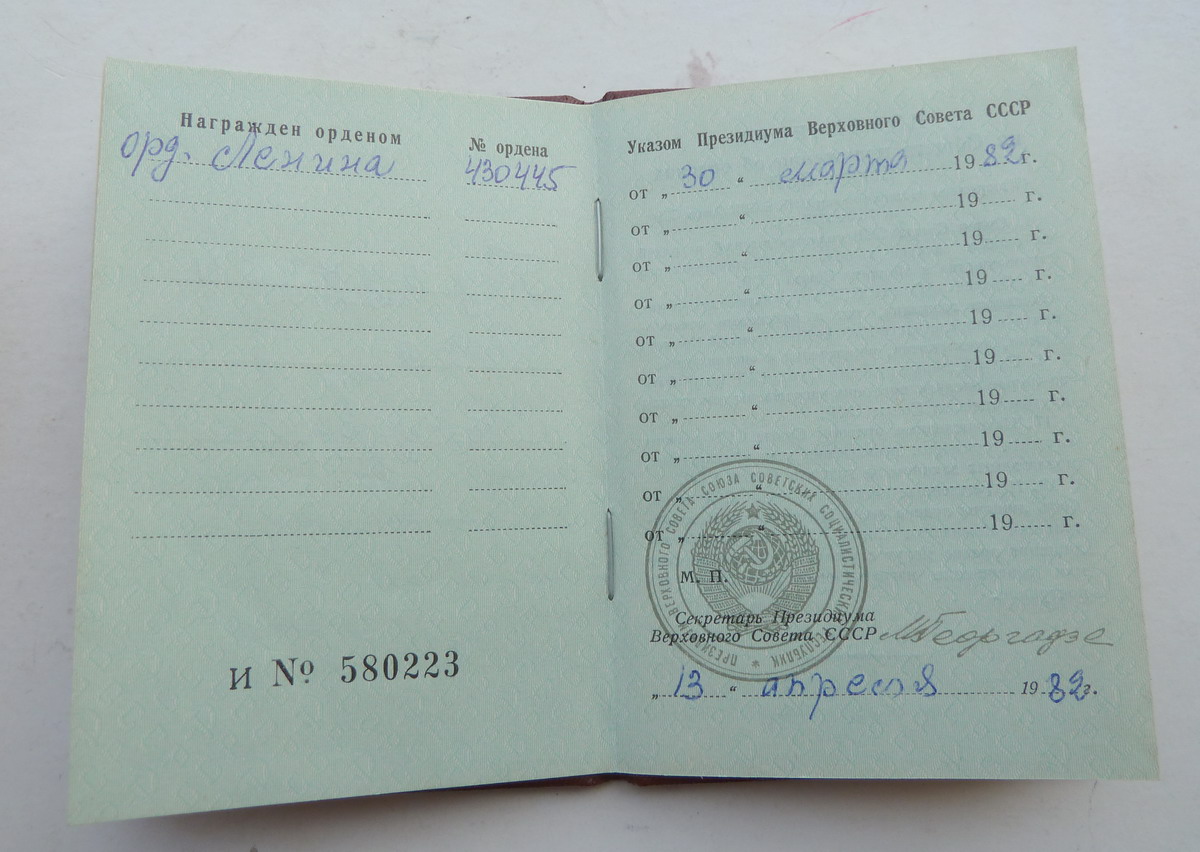 Награжден орденом
№ ордена
орд. Ленина
430445
И № 580223
Указом Президиума Верховного Совета СССР
от „ 30 “ марта 1982г.
от „ “ 19 г.
от „ “ 19 г.
от „ “ 19 г.
от „ “ 19 г.
от „ “ 19 г.
от „ “ 19 г.
от „ “ 19 г.
от „ “ 19 г.
от „ “ 19 г.
ПРЕЗИДИУМ ВЕРХОВНОГО СОВЕТА СОЮЗА СОВЕТСКИХ СОЦИАЛИСТИЧЕСКИХ РЕСПУБЛИК *
М. П.
Секретарь Президиума
Верховного Совета СССР МГеоргадзе
„ 13 “ апреля 1982г.